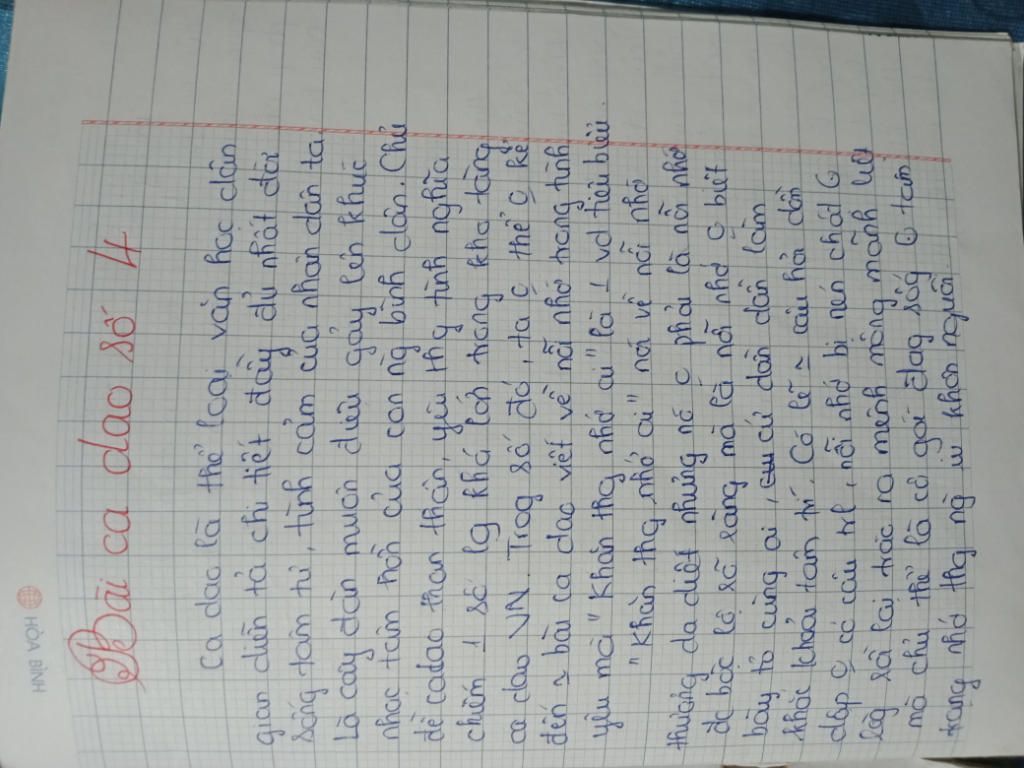 HÒA BÌNH
Bài ca dao số 4
Ca dao là thể loại văn học dân
gian diễn tả chi tiết đầy đủ nhất đời
sống tâm tư, tình cảm của nhân dân ta.
Là cây đàn muôn điệu gảy lên khúc
nhạc tâm hồn của con ng bình dân. Chủ
đề ca dao than thân, yêu thg tình nghĩa
chiếm 1 số lg khá lớn trong kho tàng
ca dao VN. Trog số đó, ta c thể c kể
đến ~ bài ca dao viết về nỗi nhớ trong tình
yêu mà "Khăn thg nhớ ai" là 1 vd tiêu biểu.
"Khăn thg nhớ ai" nói về nỗi nhớ
thường da diết nhưng nó c phải là nỗi nhớ
đc bộc lộ sỗ sàng mà là nỗi nhớ c biết
bày tỏ cùng ai, cứ dồn dần làm
khắc khoải tâm trí. Có lẽ ~ câu hỏi dồn
dập c có câu trl, nỗi nhớ bị nén chặt
lòg rồi lại trào ra mênh mông mãnh liệt
mà chủ thể là cô gái đag sốg tâm
trạng nhớ thg ng iu khôn nguôi